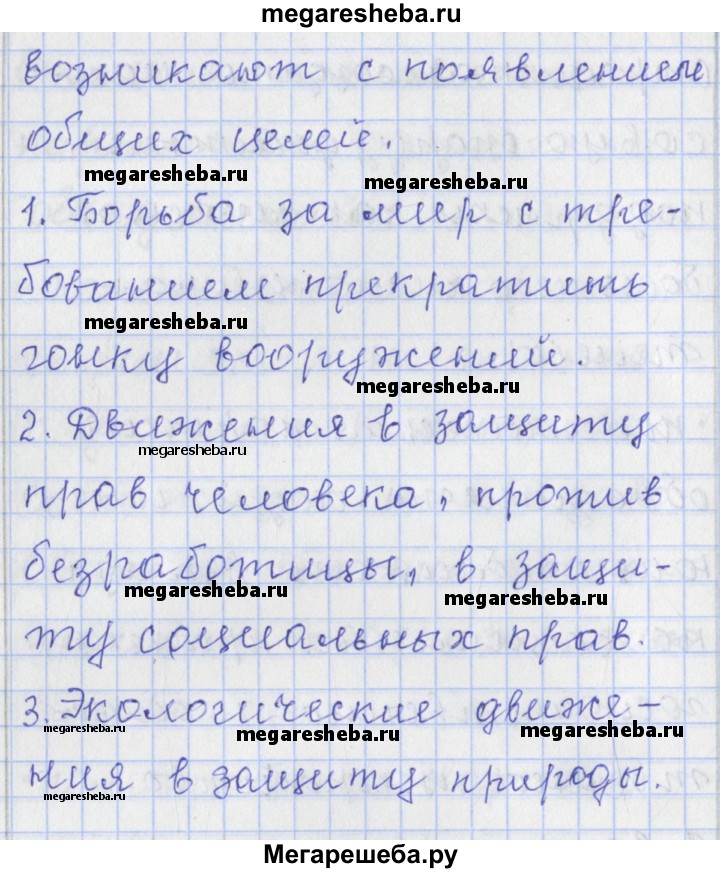 megaresheba.ru
возникают с появлением
общих целей.
megaresheba.ru megaresheba.ru
1. Борьба за мир с тре-
бованием прекратить
megaresheba.ru
гонку вооружений.
megaresheba.ru
2. Движения в защиту
megaresheba.ru
прав человека, против
безработицы, в защи-
megaresheba.ru megaresheba.ru
ту социальных прав.
3. Экологические движе-
megaresheba.ru megaresheba.ru megaresheba.ru
ния в защиту природы.
megaresheba.ru
Мегарешеба.ру